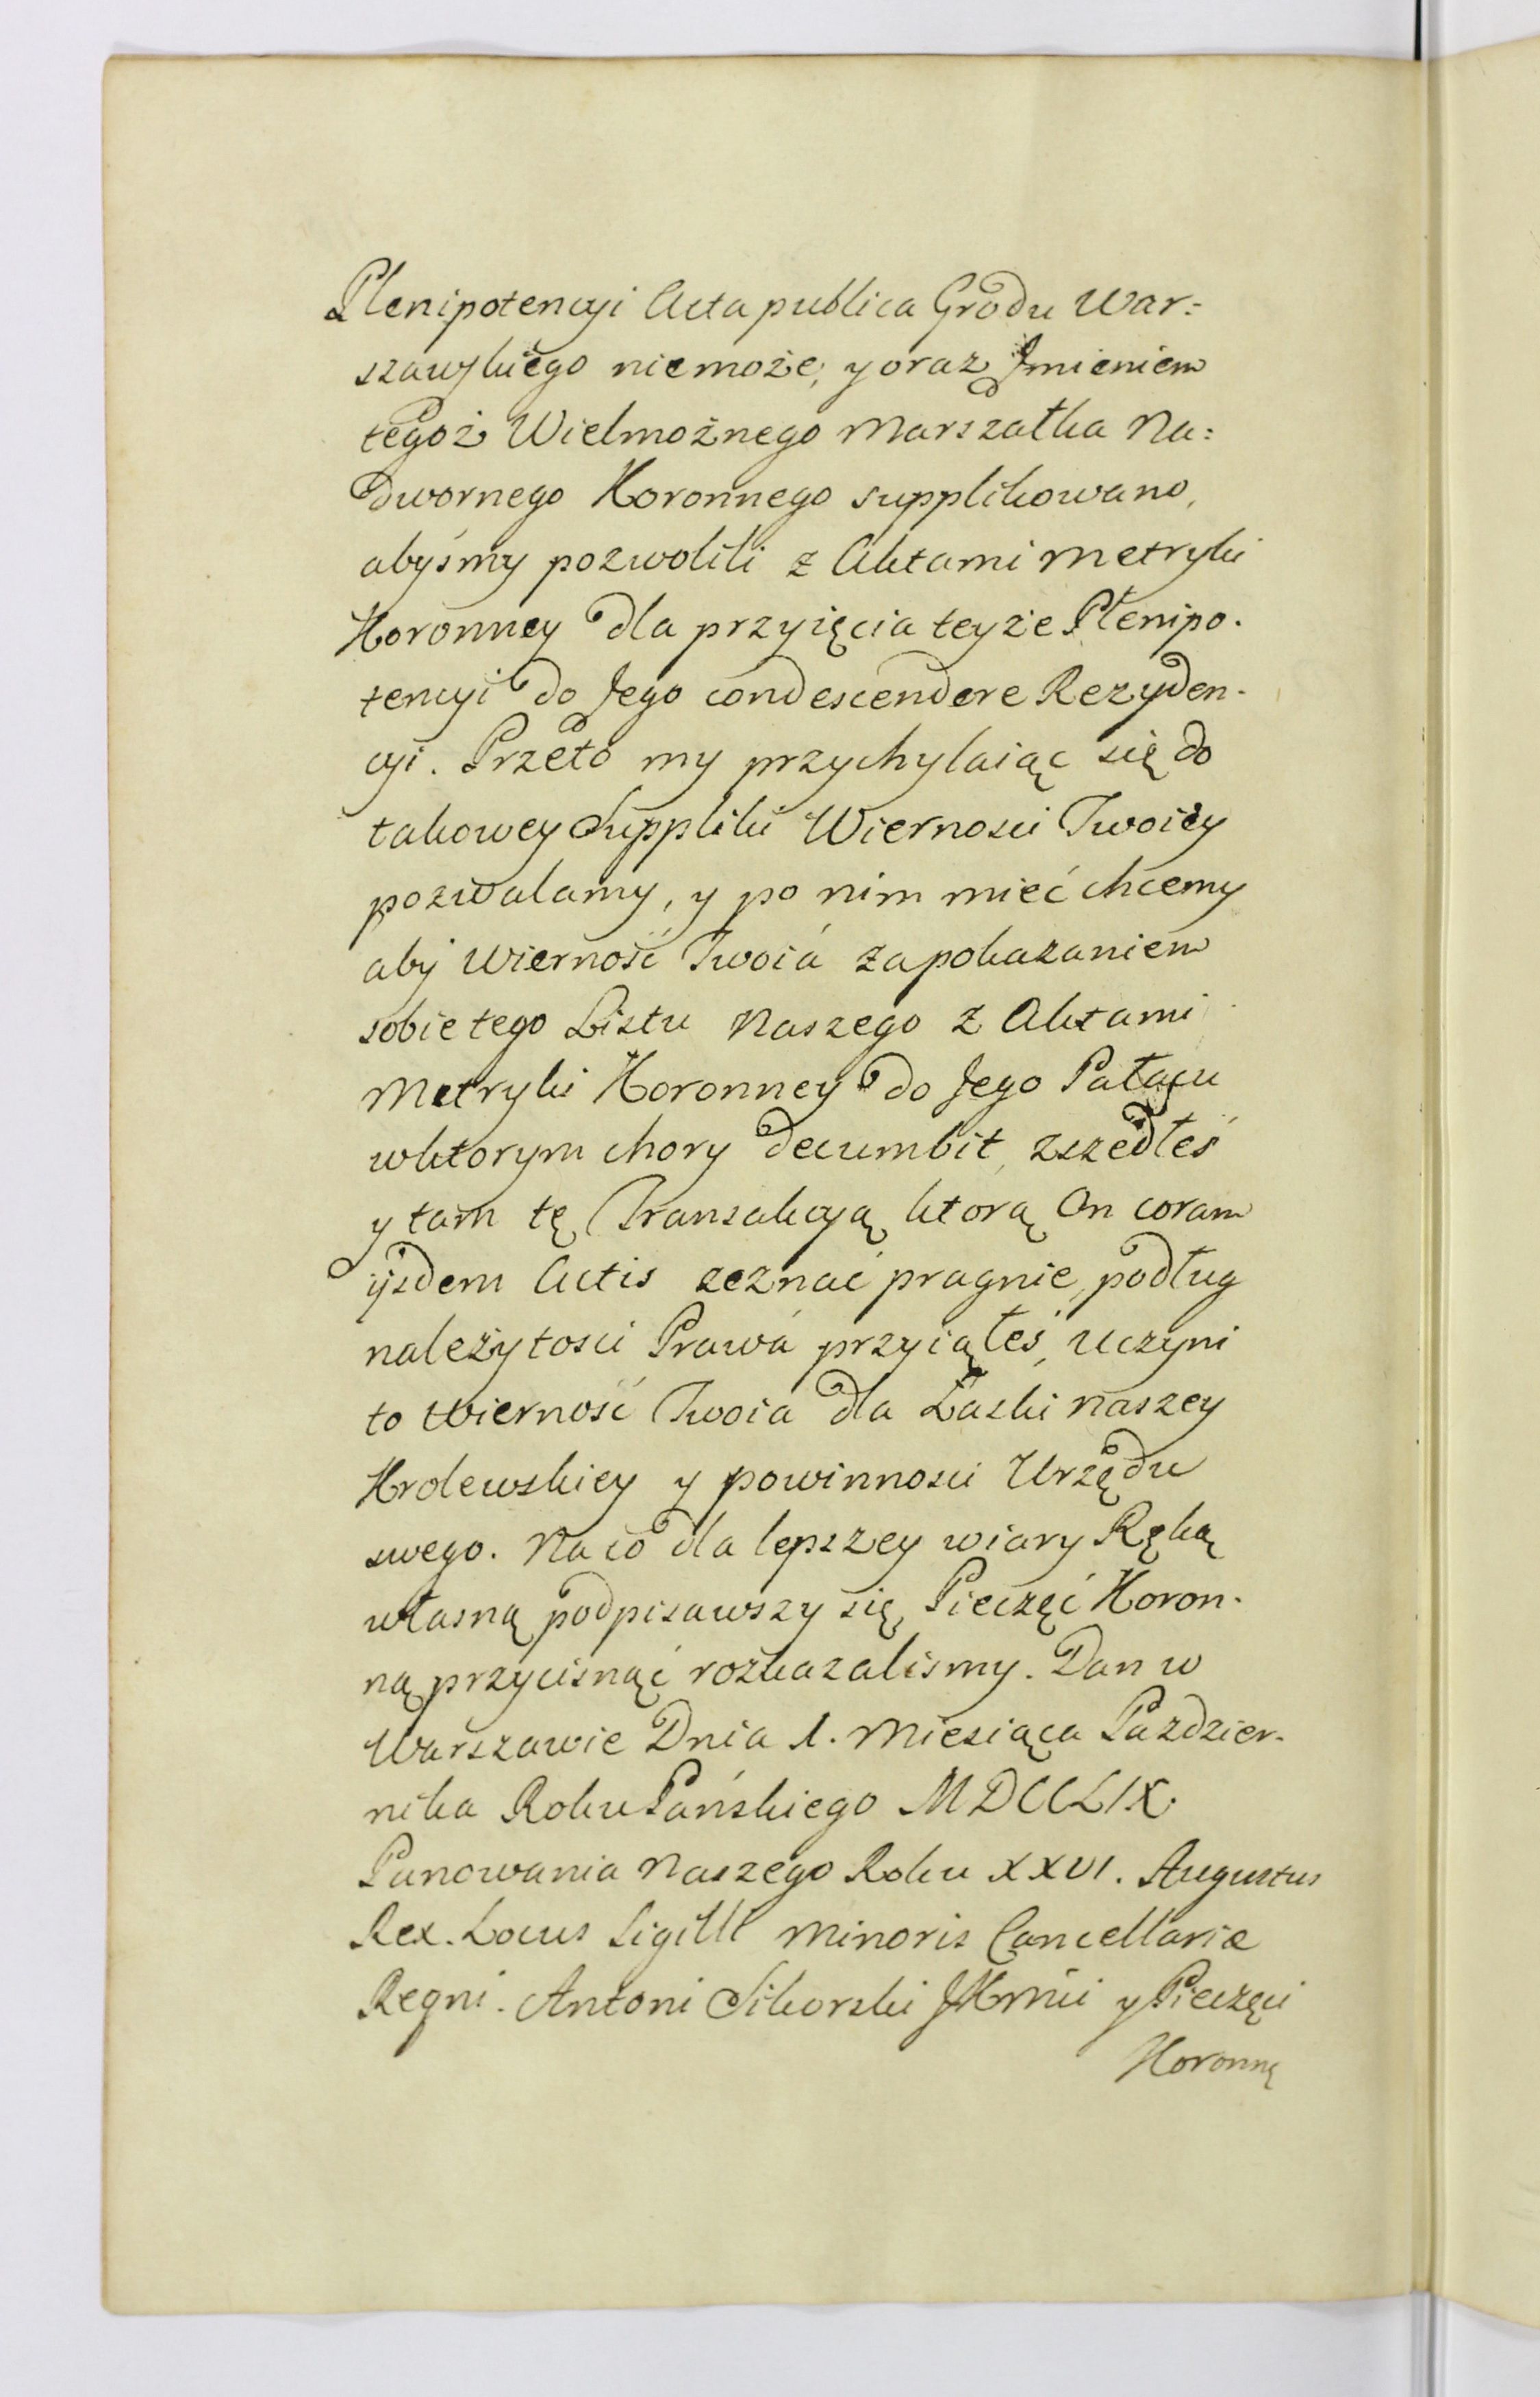 Plenipotencyi Acta publica Grodu War:
szawskiego niemoże, y oraz Jmieniem
tegoż Wielmożnego Marszałka Na:
dwornego Koronnego supplikowano,
abyśmy pozwolili z Aktami Metryki
Koronney dla przyięcia teyże Plenipo.
tencyi do Jego condescendere Rezyden.
cyi. Przeto my przychylaiąc się do
takowey Suppliki Wiernosci Twoiey
pozwalamy, y po nim mieć chcemy
aby Wierność Twoia zapokazaniem
sobie tego Listu Naszego z Aktami
Metryki Koronney do Jego Pałacu
wktorym chory decumbit, zszedłeś
y tam tę Transakcyą ktorą On coram
ijsdem Actis zeznać pragnie, podług
należytosci Prawa przyiąłeś, uczyni
to Wierność Twoia dla Łaski Naszey
Krolewskiey y powinnosci Urzędu
swego. Naco dla lepszey wiary Ręką
własną podpisawszy się, Pieczęć Koron.
ną przycisnąć rozkazalismy. Dan w
Warszawie Dnia 1. Miesiąca Pazdzier.
nika Roku Pańskiego MDCCLIX.
Panowania Naszego Roku XXVI. Augustus
Rex. Locus Sigilli Minoris Cancellariæ
Regni. Antoni Sikorski y Pieczęci
Koronną